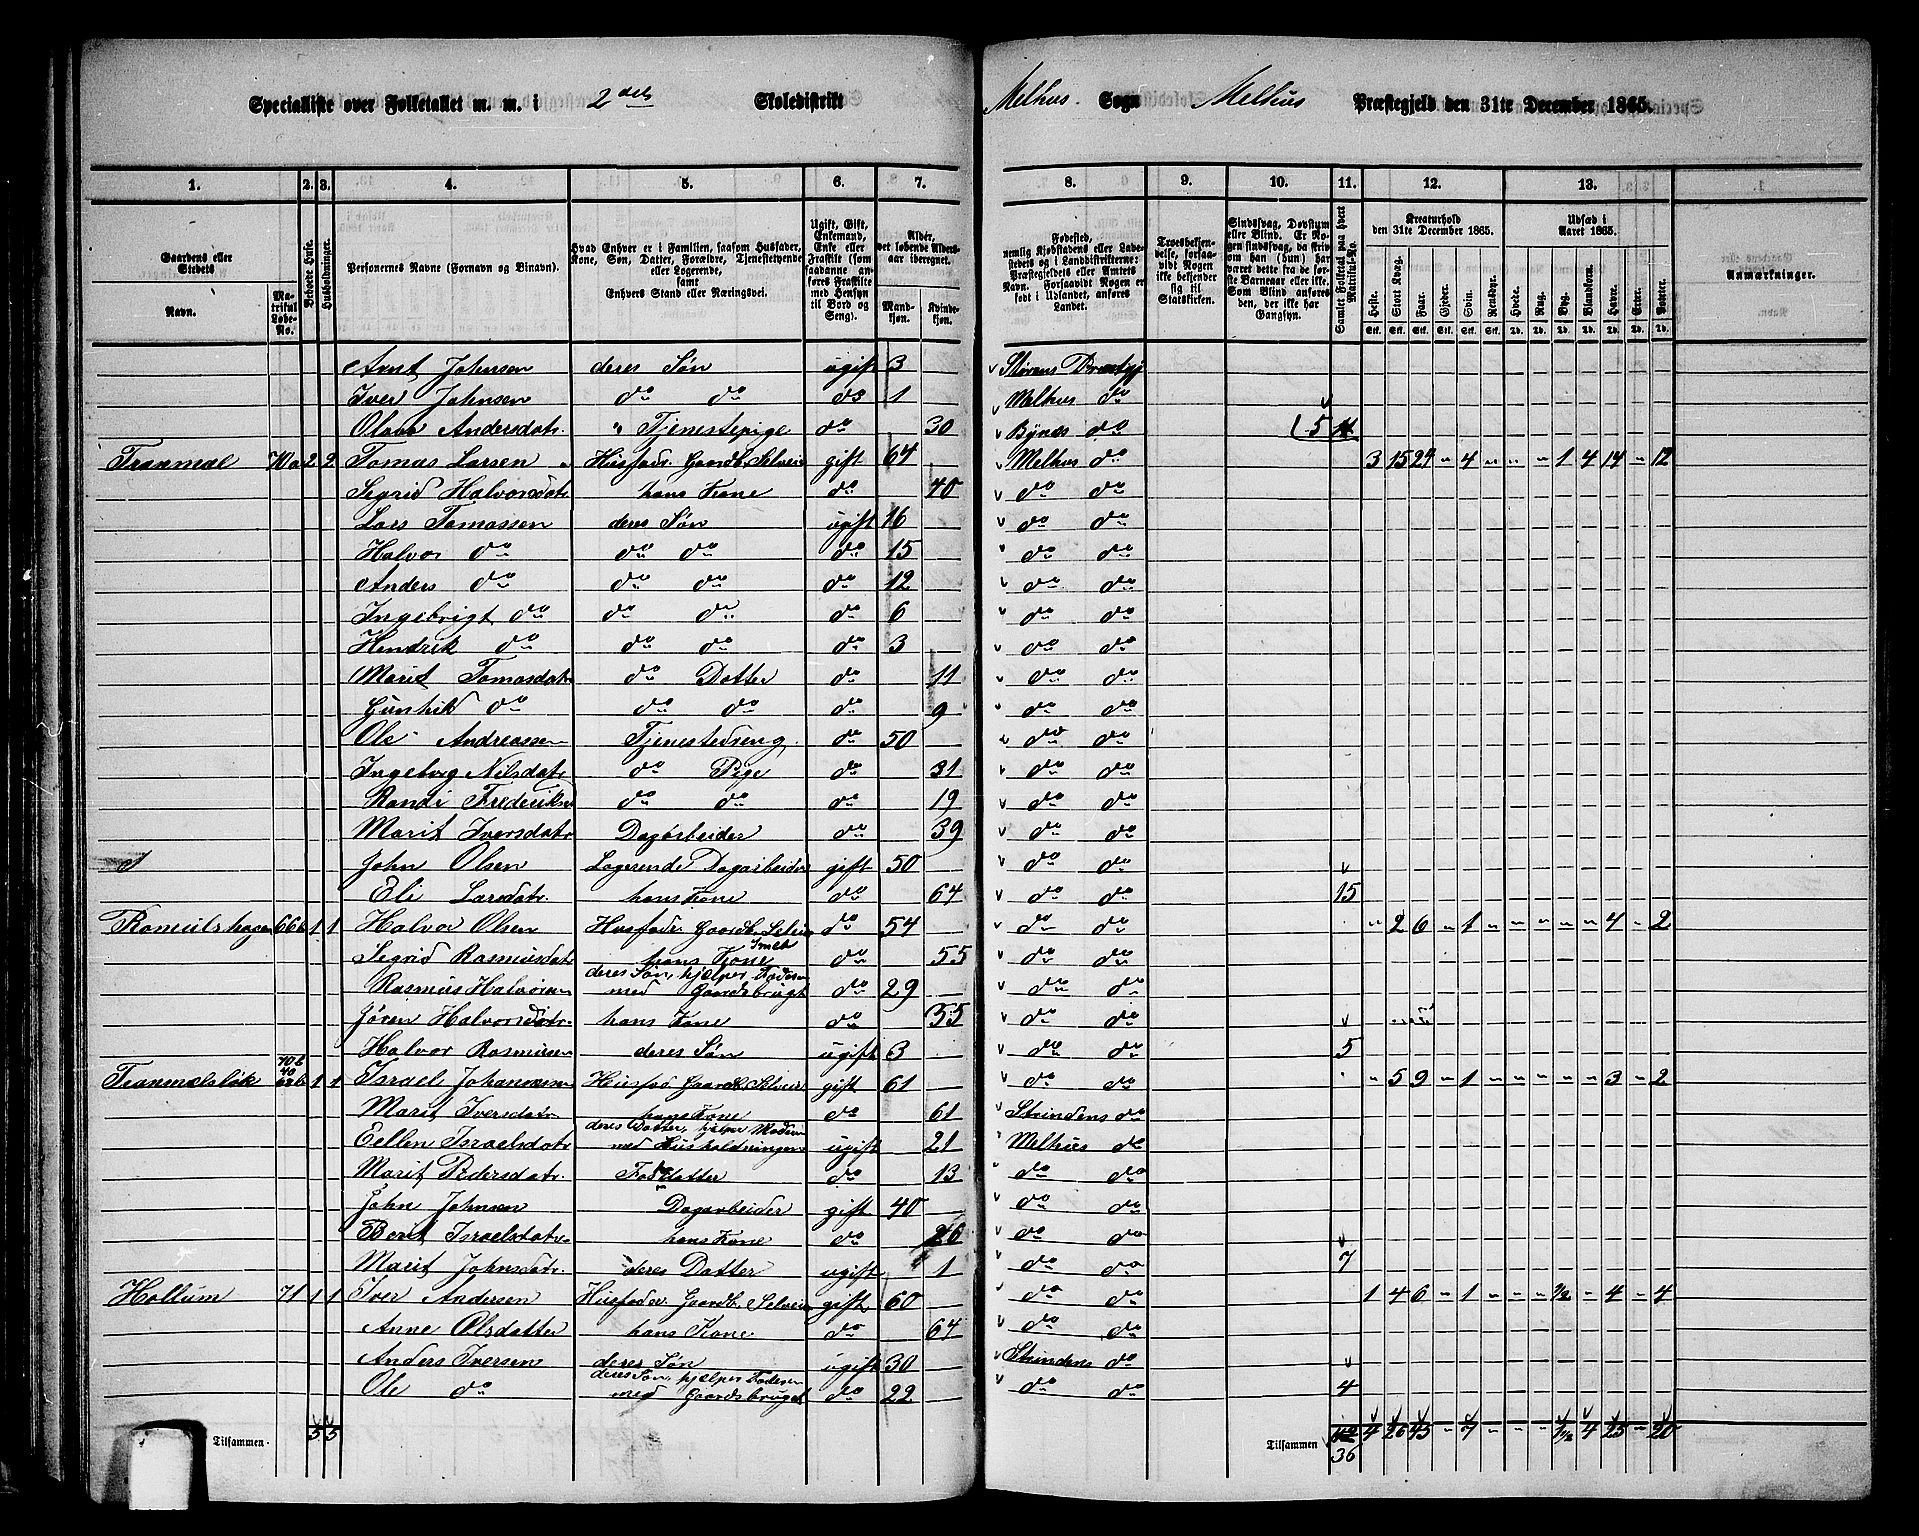 Specialliste over Folketallet m. m. i 2 dels Skoledistrikt Melhus Sogn Melhus Præstegjeld den 31te December 1865.
1. 2. 3. 4. 5. 6. 7. 8. 9. 10. 11. 12. 13. 1.
Gaardens eller Stedets Navn. Matrikul Løbe-No. Beboede Huse. Husholdninger. Personernes Navne (Fornavn og Binavn).
Hvad Enhver er i Familien, saasom Husfader, Kone, Søn, Datter, Forældre, Tjenestetyende eller Logerende, samt Enhvers Stand eller Næringsvei.
Ugift, Gift, Enkemand, Enke eller Fraskilt (som saadanne anføres Fraskilte med Hensyn til Bord og Seng).
Alder, det løbende Alders-aar iberegnet. Mandkjøn. Kvindekjøn.
Fødested, nemlig Kjøbstadens eller Ladestedets og i Landdistrikterne: Præstegjeldets eller Amtets Navn. Forsaavidt Nogen er født i Udlandet, anføres Landet.
Troesbekjendelse, forsaavidt Nogen ikke bekjender sig til Statskirken.
Sindssvag, Døvstum eller Blind. Er Nogen sindssvag, da skrives om han (hun) har været dette fra de første Barneaar eller ikke. Som Blind anføres den, der ikke har Gangsyn.
Samlet Folketal paa hvert Matrikul-No.
Kreaturhold den 31te December 1865. Heste. Stort Kvæg. Faar. Gjeder. Svin. Rensdyr.
Udsæd i Aaret 1865. Hvede. Rug. Byg. Blandkorn. Havre. Erter. Poteter.
Anmærkninger.
Arnt Johnsen deres Søn ugift 3 Størens Præstgj
Iver Johnsen do do do 1 Melhus do
Olava Andersdatr. " Tjenestepige do 30 Bynes do 5
Tranmæl 70a 2 2 Tomas Larsen Husfadr. Gaardb. Selveie gift 64 Melhus do 3 15 24 - 4 - - - 1 4 14 - 12
Sigrid Halvorsdatr hans Kone do 40 do do
Lars Tomassen deres Søn ugift 16 do do
Halvor do do do do 15 do do
Anders do do do do 12 do do
Ingebrigt do do do do 6 do do
Hendrik do do do do 3 do do
Marit Tomasdatr do Datter do 11 do do
Gunhild do do do do 9 do do
Ole Andreassen Tjenestedreng do 50 do do
Ingeborg Nilsdatr do Pige do 31 do do
Randi Frederiksd do do do 19 do do
Marit Iversdatr Dagarbeider do 39 do do
John Olsen Logerende Dagarbeider gift 50 do do
Eli Larsdatr. hans Kone do 64 do do 15
Romulshagen 66b 1 1 Halvor Olsen Husfadr. Gaardb. Selveie Smed do 54 do do - 2 6 - 1 - - - - - 4 - 2
Sigrid Rasmusdatr hans Kone do 55 do do
Rasmus Halvorsen deres Søn, hjelper Faderen med Gaardsbruget do 29 do do
Jøren Halvorsdatr. hans Kone do 35 do do
Halvor Rasmusen deres Søn ugift 3 do do 5
Tranmælsløk 70b 1 1 Israel Johannesen Husfad Gaardb. Selveier gift 61 do do - 5 9 - 1 - - - - - 3 - 2
Marit Iversdatr. hans Kone do 61 Strindens do
Eellen Israelsdatr deres Datter, hjelper Moderen med Husholdningen ugift 21 Melhus do
Marit Pedersdatr. Fosterdatter do 13 do do
John Johnsen Dagarbeider gift 40 do do
Berit Israelsdatr. hans Kone do 26 do do
Marit Johnsdatr. deres Datter ugift 1 do do 7
Hollum 71 1 1 Iver Andersen Husfader Gaardb. Selveier gift 60 do do 1 4 6 - 1 - - - 1/2 - 4 - 4
Anne Olsdatter hans Kone do 64 do do
Anders Iversen deres Søn ugift 30 Strindens do
Ole do deres Søn, hjelper Faderen med Gaardsbruget do 22 do do 4
Tilsammen 5 5 Tilsammen 36 4 26 45 - 7 - - - 1 1/2 4 25 - 20